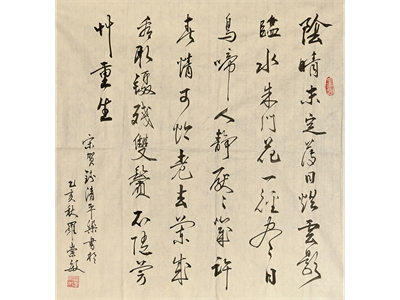 陰晴未定薄日烘雲影
臨水朱門花一徑尽日
鳥啼人靜厭〻幾許
春情可怜老去蘭成
看取鑷殘雙鬢不随芳
艸重生
宋賀鑄清平樂書於
己亥秋羅崇敏